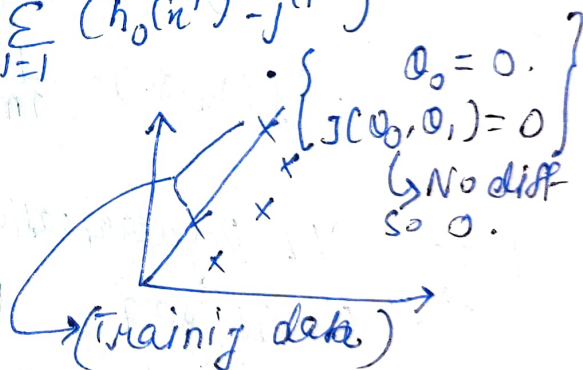 Σ (hθ(x
j=1
θ₀ = 0.
J(θ₀, θ₁) = 0
↳ No diff
so 0.
(Trainig data)